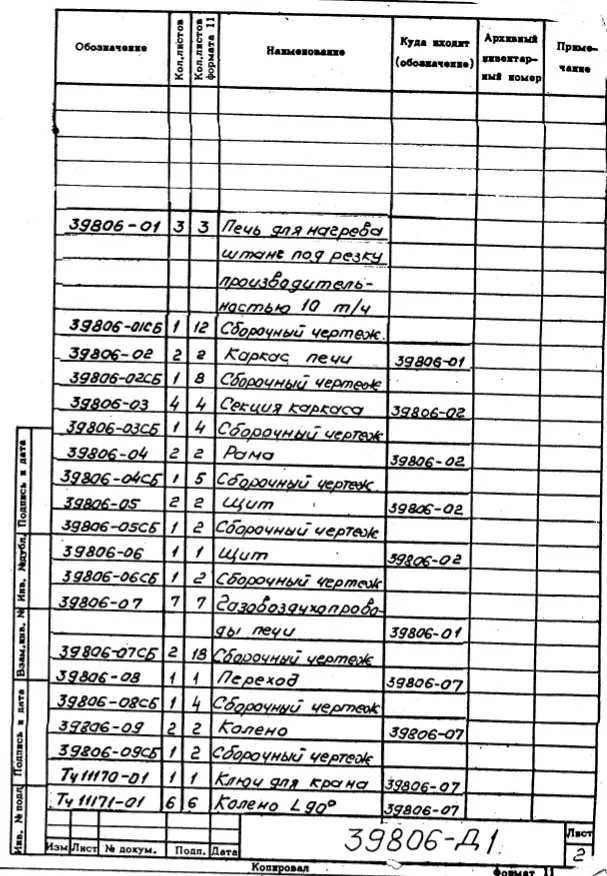 Обозначение Кол,листов Кол,листов формата 11 Наименование Куда входит (обозначение) Архивный инвентар- ный номер Приме- чание
39806-01 3 3 Печь для нагрева
штанг под резку
производитель-
ностью 10 т/ч
39806-01СБ 1 12 Сборочный чертеж.
39806-02 2 2 Каркас печи 39806-01
39806-02СБ 1 8 Сборочный чертеж
39806-03 4 4 Секция каркаса 39806-02
39806-03СБ 1 4 Сборочный чертеж
39806-04 2 2 Рама 39806-02
39806-04СБ 1 5 Сборочный чертеж.
39806-05 2 2 Щит 39806-02
39806-05СБ 1 2 Сборочный чертеж
39806-06 1 1 Щит 39806-02
39806-06СБ 1 2 Сборочный чертеж
39806-07 7 7 Газовоздухопрово-
ды печи 39806-01
39806-07СБ 2 18 Сборочный чертеж
39806-08 1 1 Переход 39806-07
39806-08СБ 1 4 Сборочный чертеж
39806-09 2 2 Колено 39806-07
39806-09СБ 1 2 Сборочный чертеж
ТЧ11170-01 1 1 Ключ для крана 39806-07
ТЧ11171-01 6 6 Колено L90° 39806-07
Инв. № подл. Подпись и дата Взам.инв. № Инв. №дубл. Подпись и дата
Изм Лист № докум. Подп. Дата
39806-Д1.
Лист
2
Копировал Формат 11